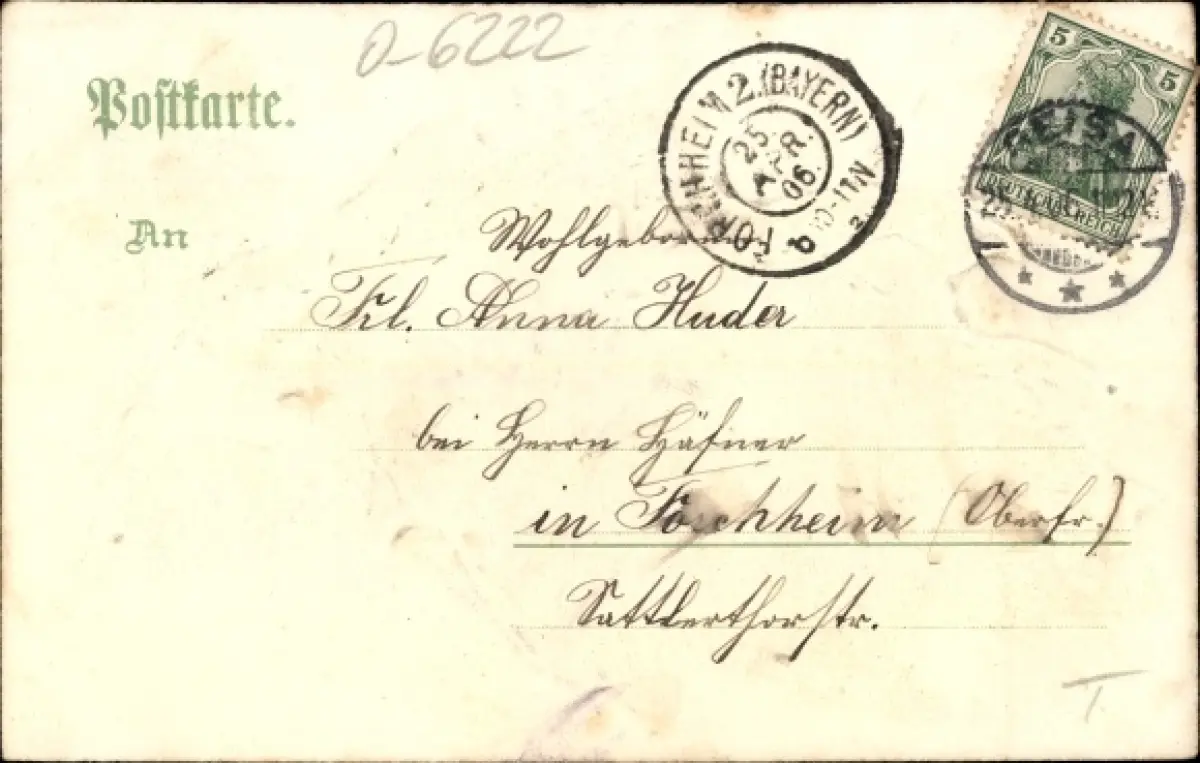 O-6222
Postkarte.
FORCHHEIM 2. (BAYERN)
25
APR.
06
10-11 N
b
5 5
DEUTSCHES REICH
GEISA
An
Wohlgeboren
Frl. Anna Huder
bei Herrn Häfner
in Forchheim (Oberfr.)
Sattlerthorstr.
T